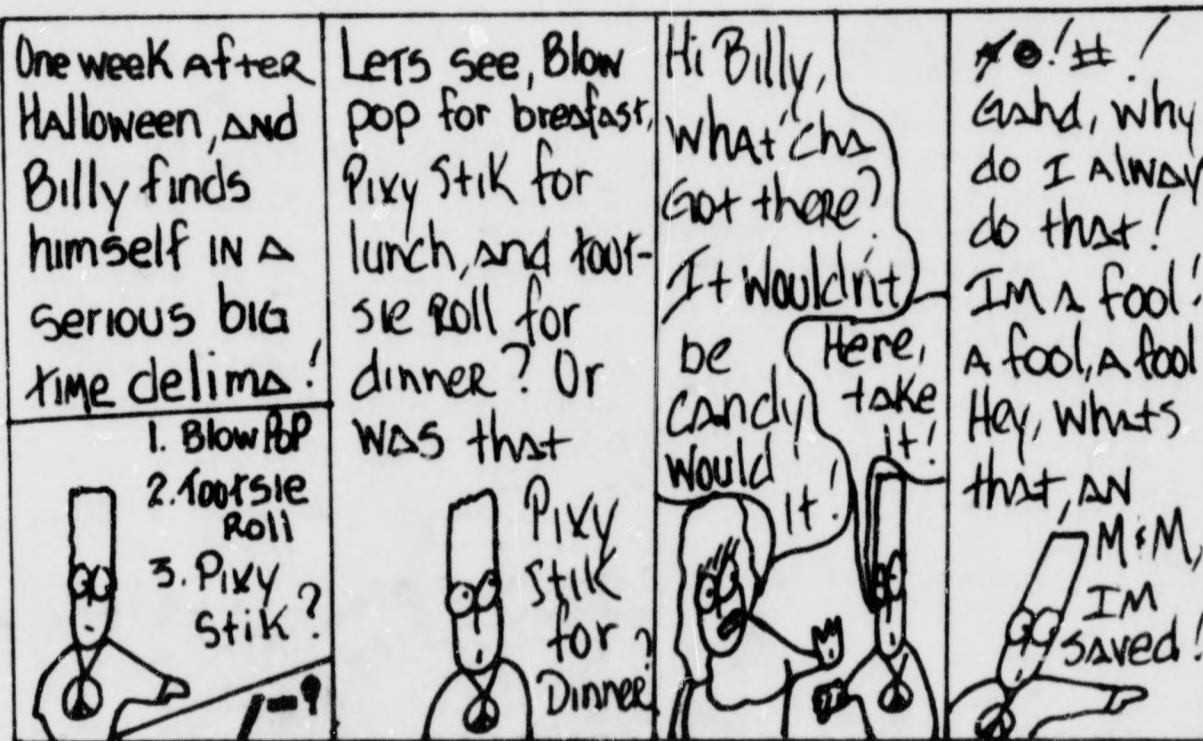 One week After
Halloween, AND
Billy finds
himself IN A
serious big
time delima!
1. Blow Pop
2. Tootsie
Roll
3. Pixy
Stik?
Lets see, Blow
pop for breafast,
Pixy Stik for
lunch, and toot-
sie Roll for
dinner? Or
was that
Pixy
Stik
for
Dinner?
Hi Billy,
what'cha
Got there?
It wouldn't
be
candy
would
it!
Here,
take
it!
Gahd, why
do I Alway
do that!
IM A fool!
A fool, A fool
Hey, whats
that, AN
M&M,
IM
saved!